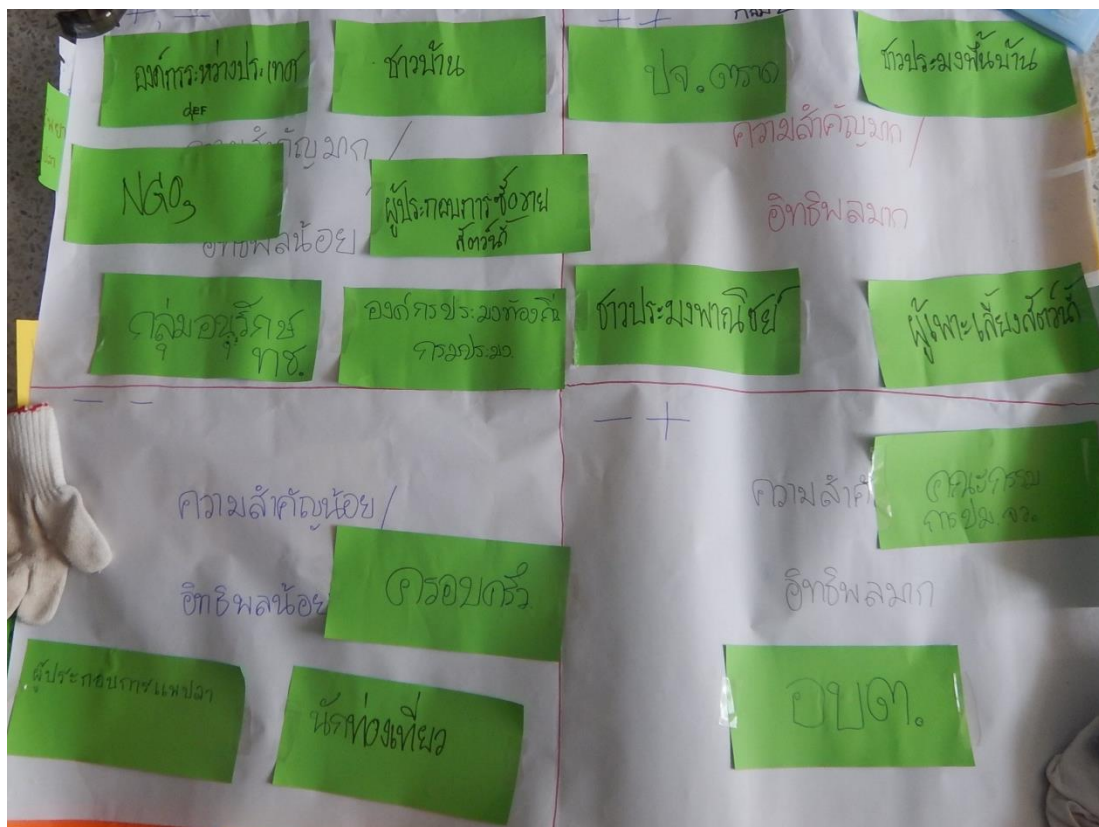 +, -
องค์การระหว่างประเทศ
def
ชาวบ้าน
ความสำคัญมาก /
NGOs
ผู้ประกอบการซื้อขาย
สัตว์น้ำ
อิทธิพลน้อย
กลุ่มอนุรักษ์
ทช.
องค์กรประมงท้องถิ่น
กรมประมง
+ +
ปจ. ตราด
ชาวประมงพื้นบ้าน
ความสำคัญมาก /
อิทธิพลมาก
ชาวประมงพาณิชย์
ผู้เพาะเลี้ยงสัตว์น้ำ
- -
ความสำคัญน้อย /
อิทธิพลน้อย
ครอบครัว
ผู้ประกอบการแพปลา
นักท่องเที่ยว
- +
ความสำคั
คณะกรรม
การปม. จว.
อิทธิพลมาก
อบต.